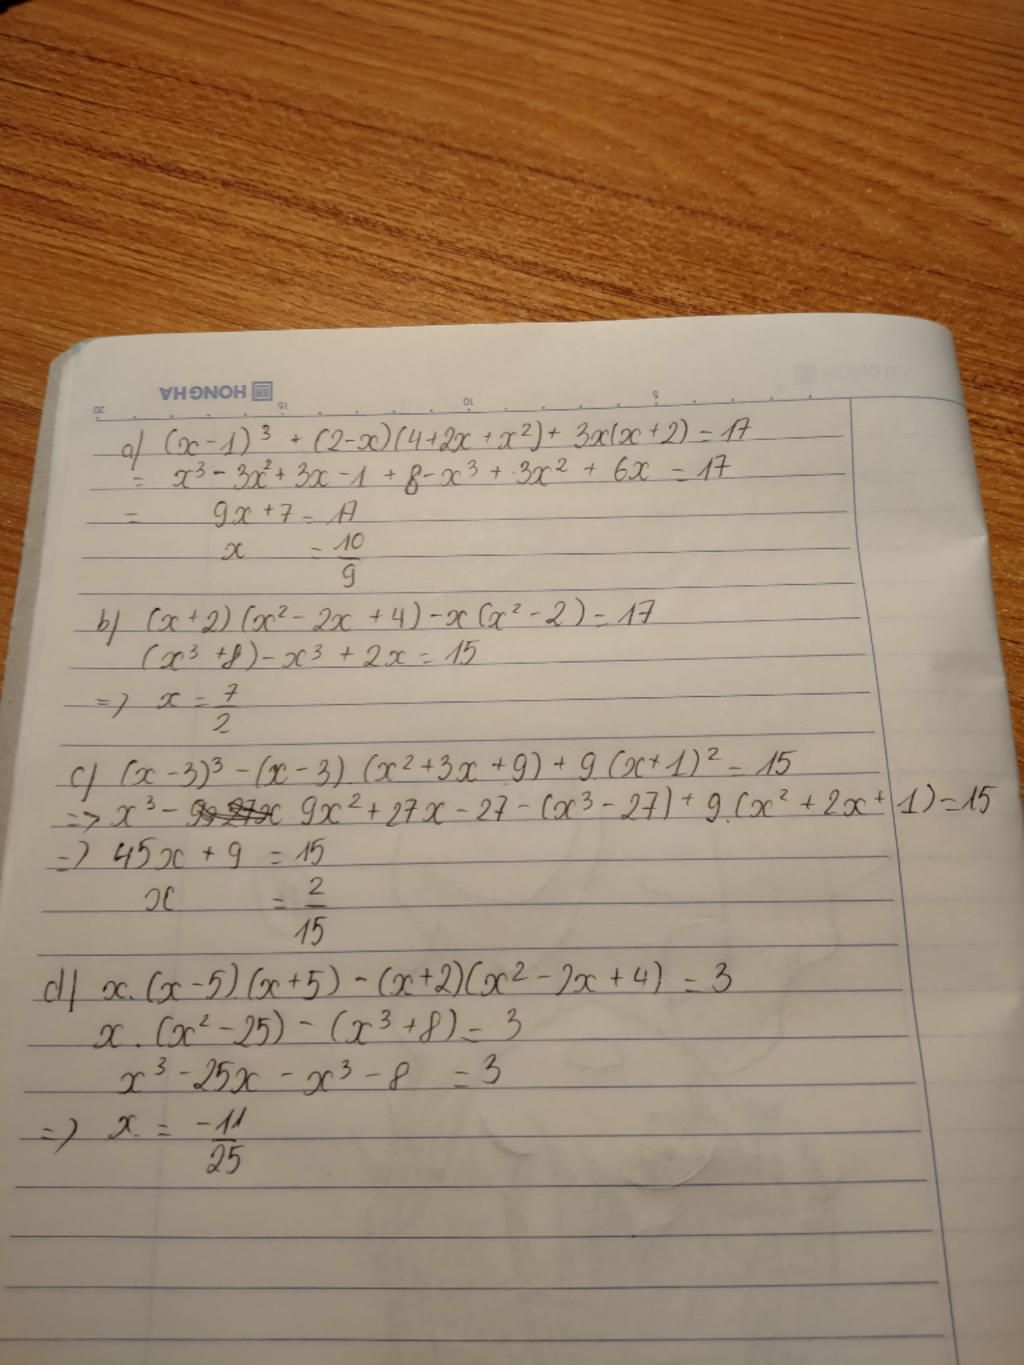 HONG HA
20 15 10 5
a) (x-1)³ + (2-x)(4+2x+x²) + 3x(x+2) = 17
= x³ - 3x² + 3x - 1 + 8 - x³ + 3x² + 6x = 17
= 9x + 7 = 17
x = 10/9
b) (x+2)(x² - 2x + 4) - x(x² - 2) = 17
(x³ + 8) - x³ + 2x = 15
=> x = 7/2
c) (x-3)³ - (x-3)(x² + 3x + 9) + 9(x+1)² = 15
=> x³ - 9x² + 27x - 27 - (x³ - 27) + 9.(x² + 2x + 1) = 15
=> 45x + 9 = 15
x = 2/15
d) x.(x-5).(x+5) - (x+2)(x² - 2x + 4) = 3
x.(x² - 25) - (x³ + 8) = 3
x³ - 25x - x³ - 8 = 3
=> x = -11/25